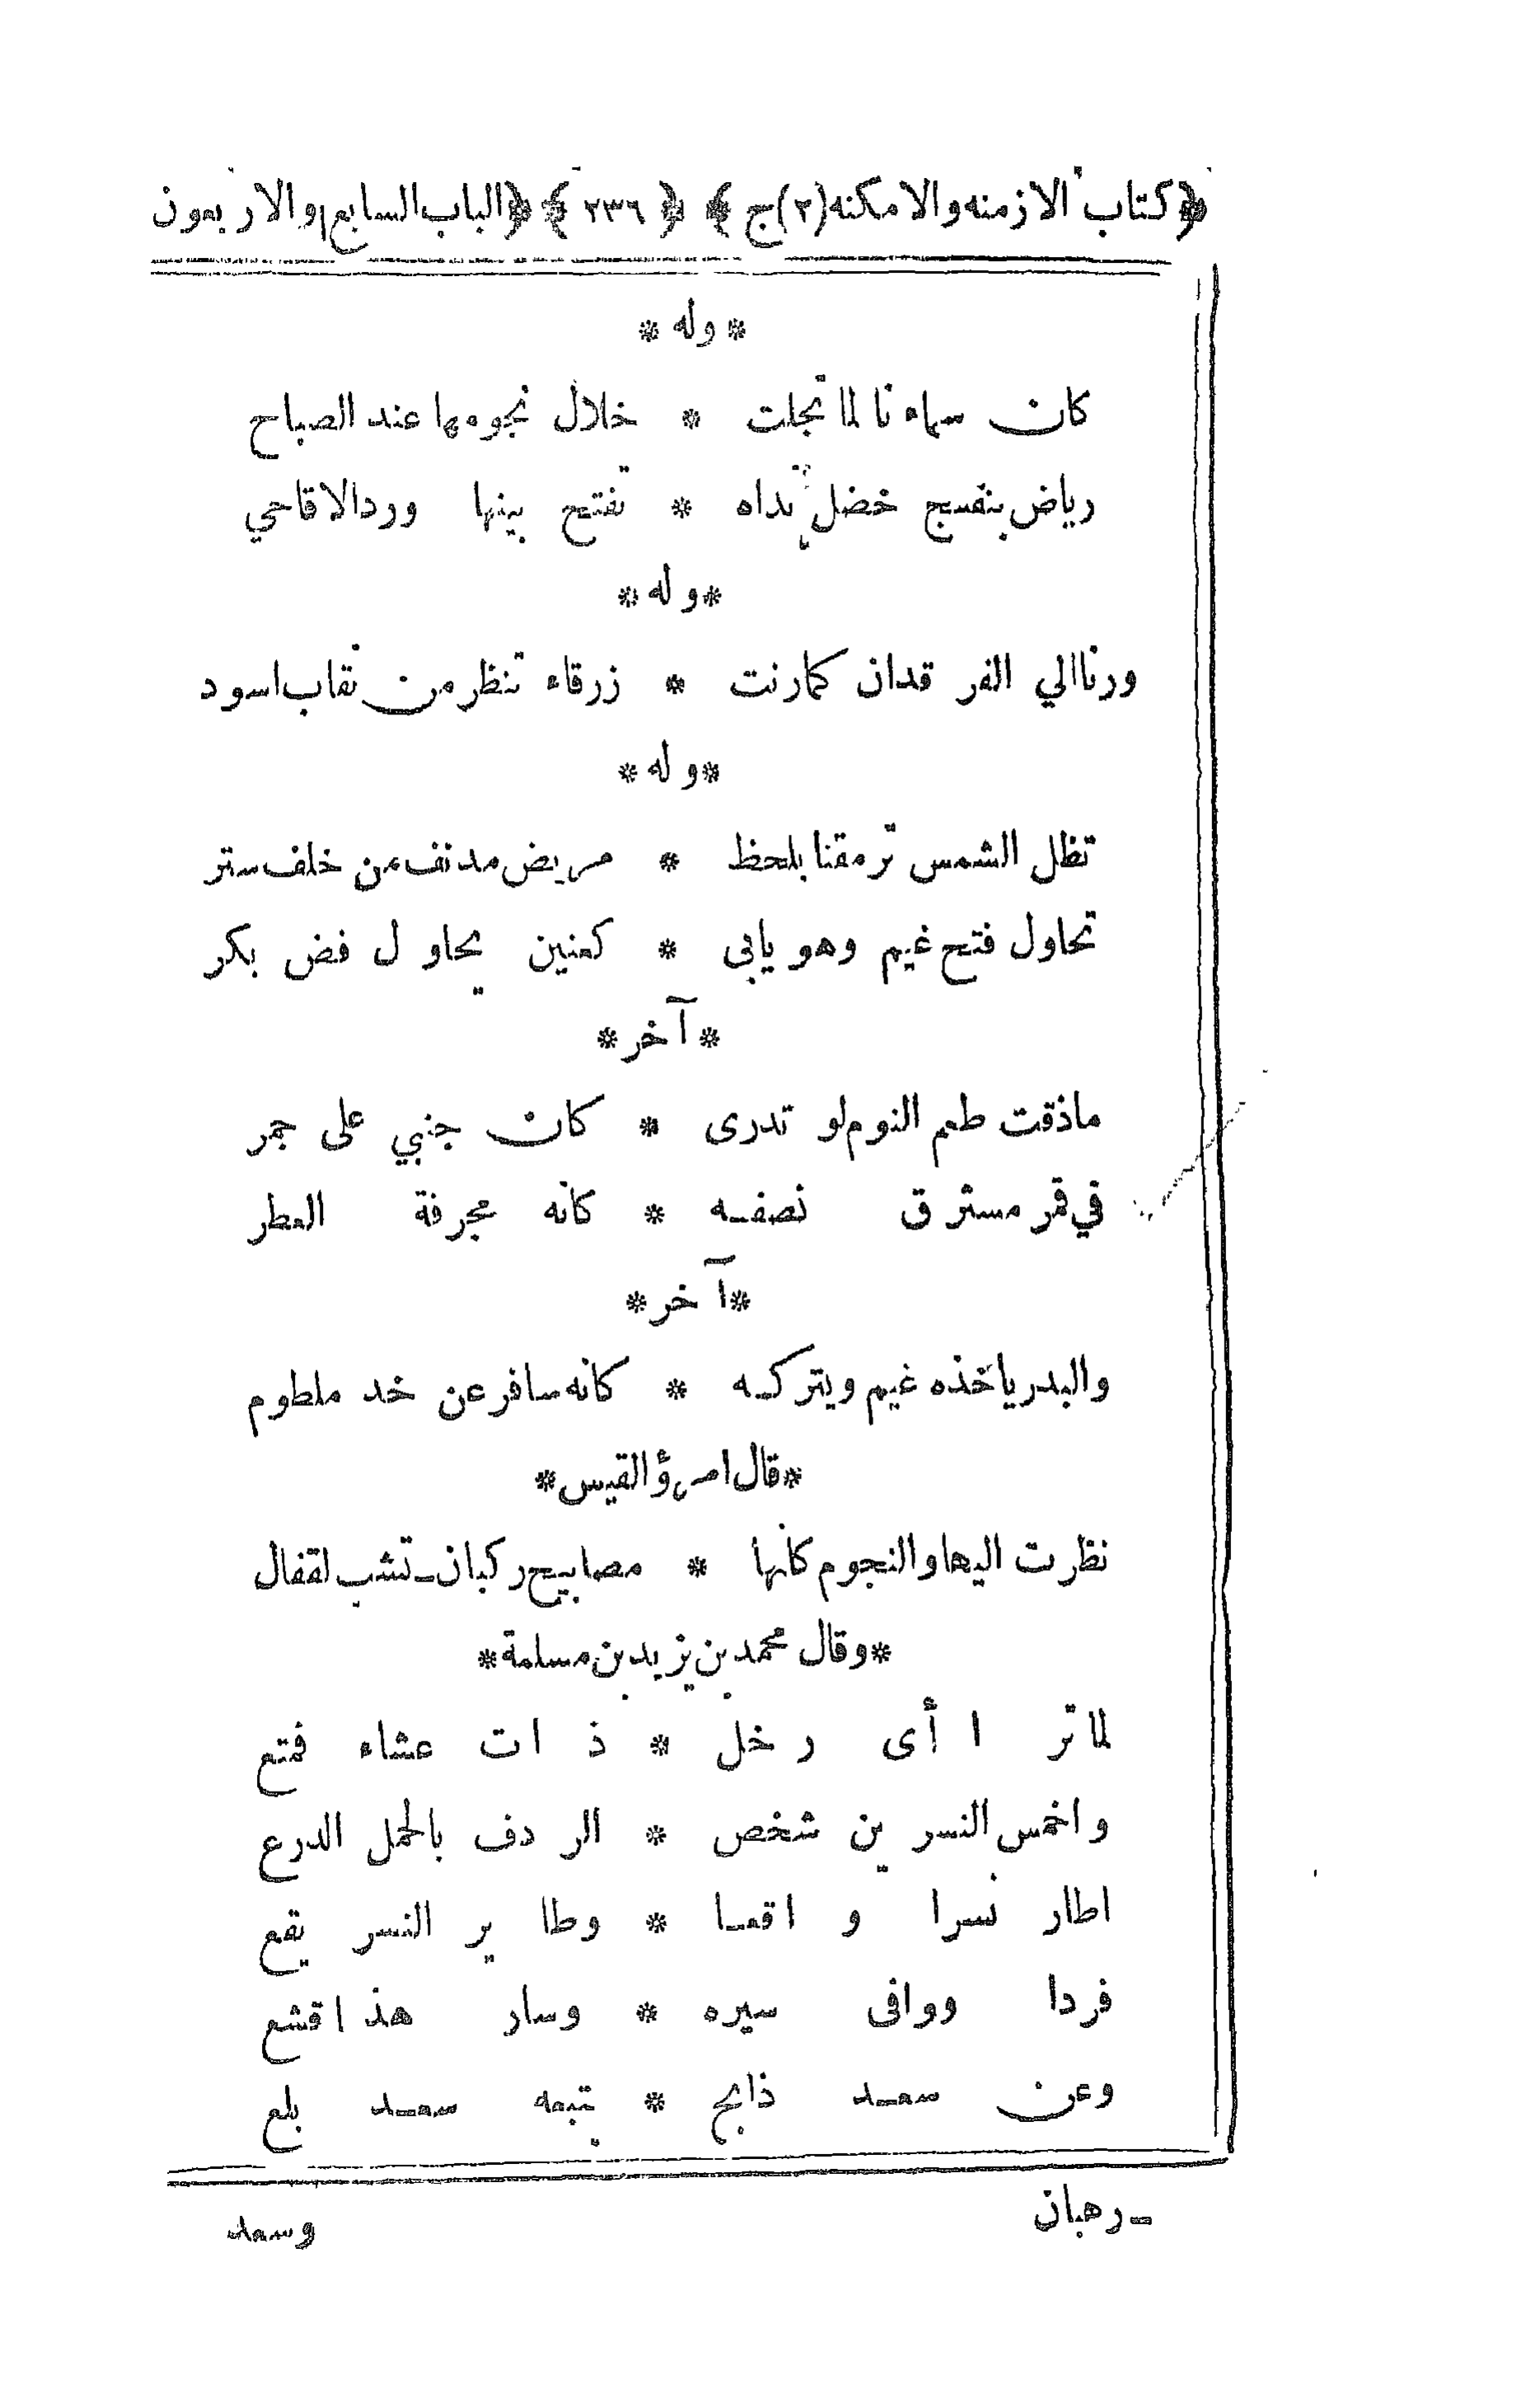 ﴿كتاب الازمنه والامكنه(٢)ج﴾ ﴿٢٣٦﴾ ﴿الباب السابع والاربعون
* وله *
كان سماءنا لما تجلت * خلال نجومها عند الصباح
رياض بنفسج خضل نداه * تفتح بينها وردالاقاحي
* وله *
ورناالي الفرقدان كمارنت * زرقاء تنظر من نقاب اسود
* وله *
تظل الشمس ترمقنا بلحظ * مريض مدنف من خلف ستر
تحاول فتح غيم وهو يابى * كعنين يحاول فض بكر
* آخر *
ماذقت طعم النوم لو تدرى * كان جنبي على جمر
في قمر مسترق نصفه * كانه مجرفة العطر
* آخر *
والبدر ياخذه غيم ويتركه * كانه سافر عن خد ملطوم
* قال امرؤ القيس *
نظرت اليها والنجوم كأنها * مصابيح ركبان_تشب لقفال
* وقال محمد بن يزيد بن مسلمة *
لما ترا أى رخل * ذات عشاء فمتع
واخمس النسرين شخص * الردف بالحمل الدرع
اطار نسرا واقعا * وطاير النسر يقع
فردا ووافى سيره * وسار هذا قشع
وعن سعد ذابح * يتبعه سعد بلع
_رهبان
وسعد